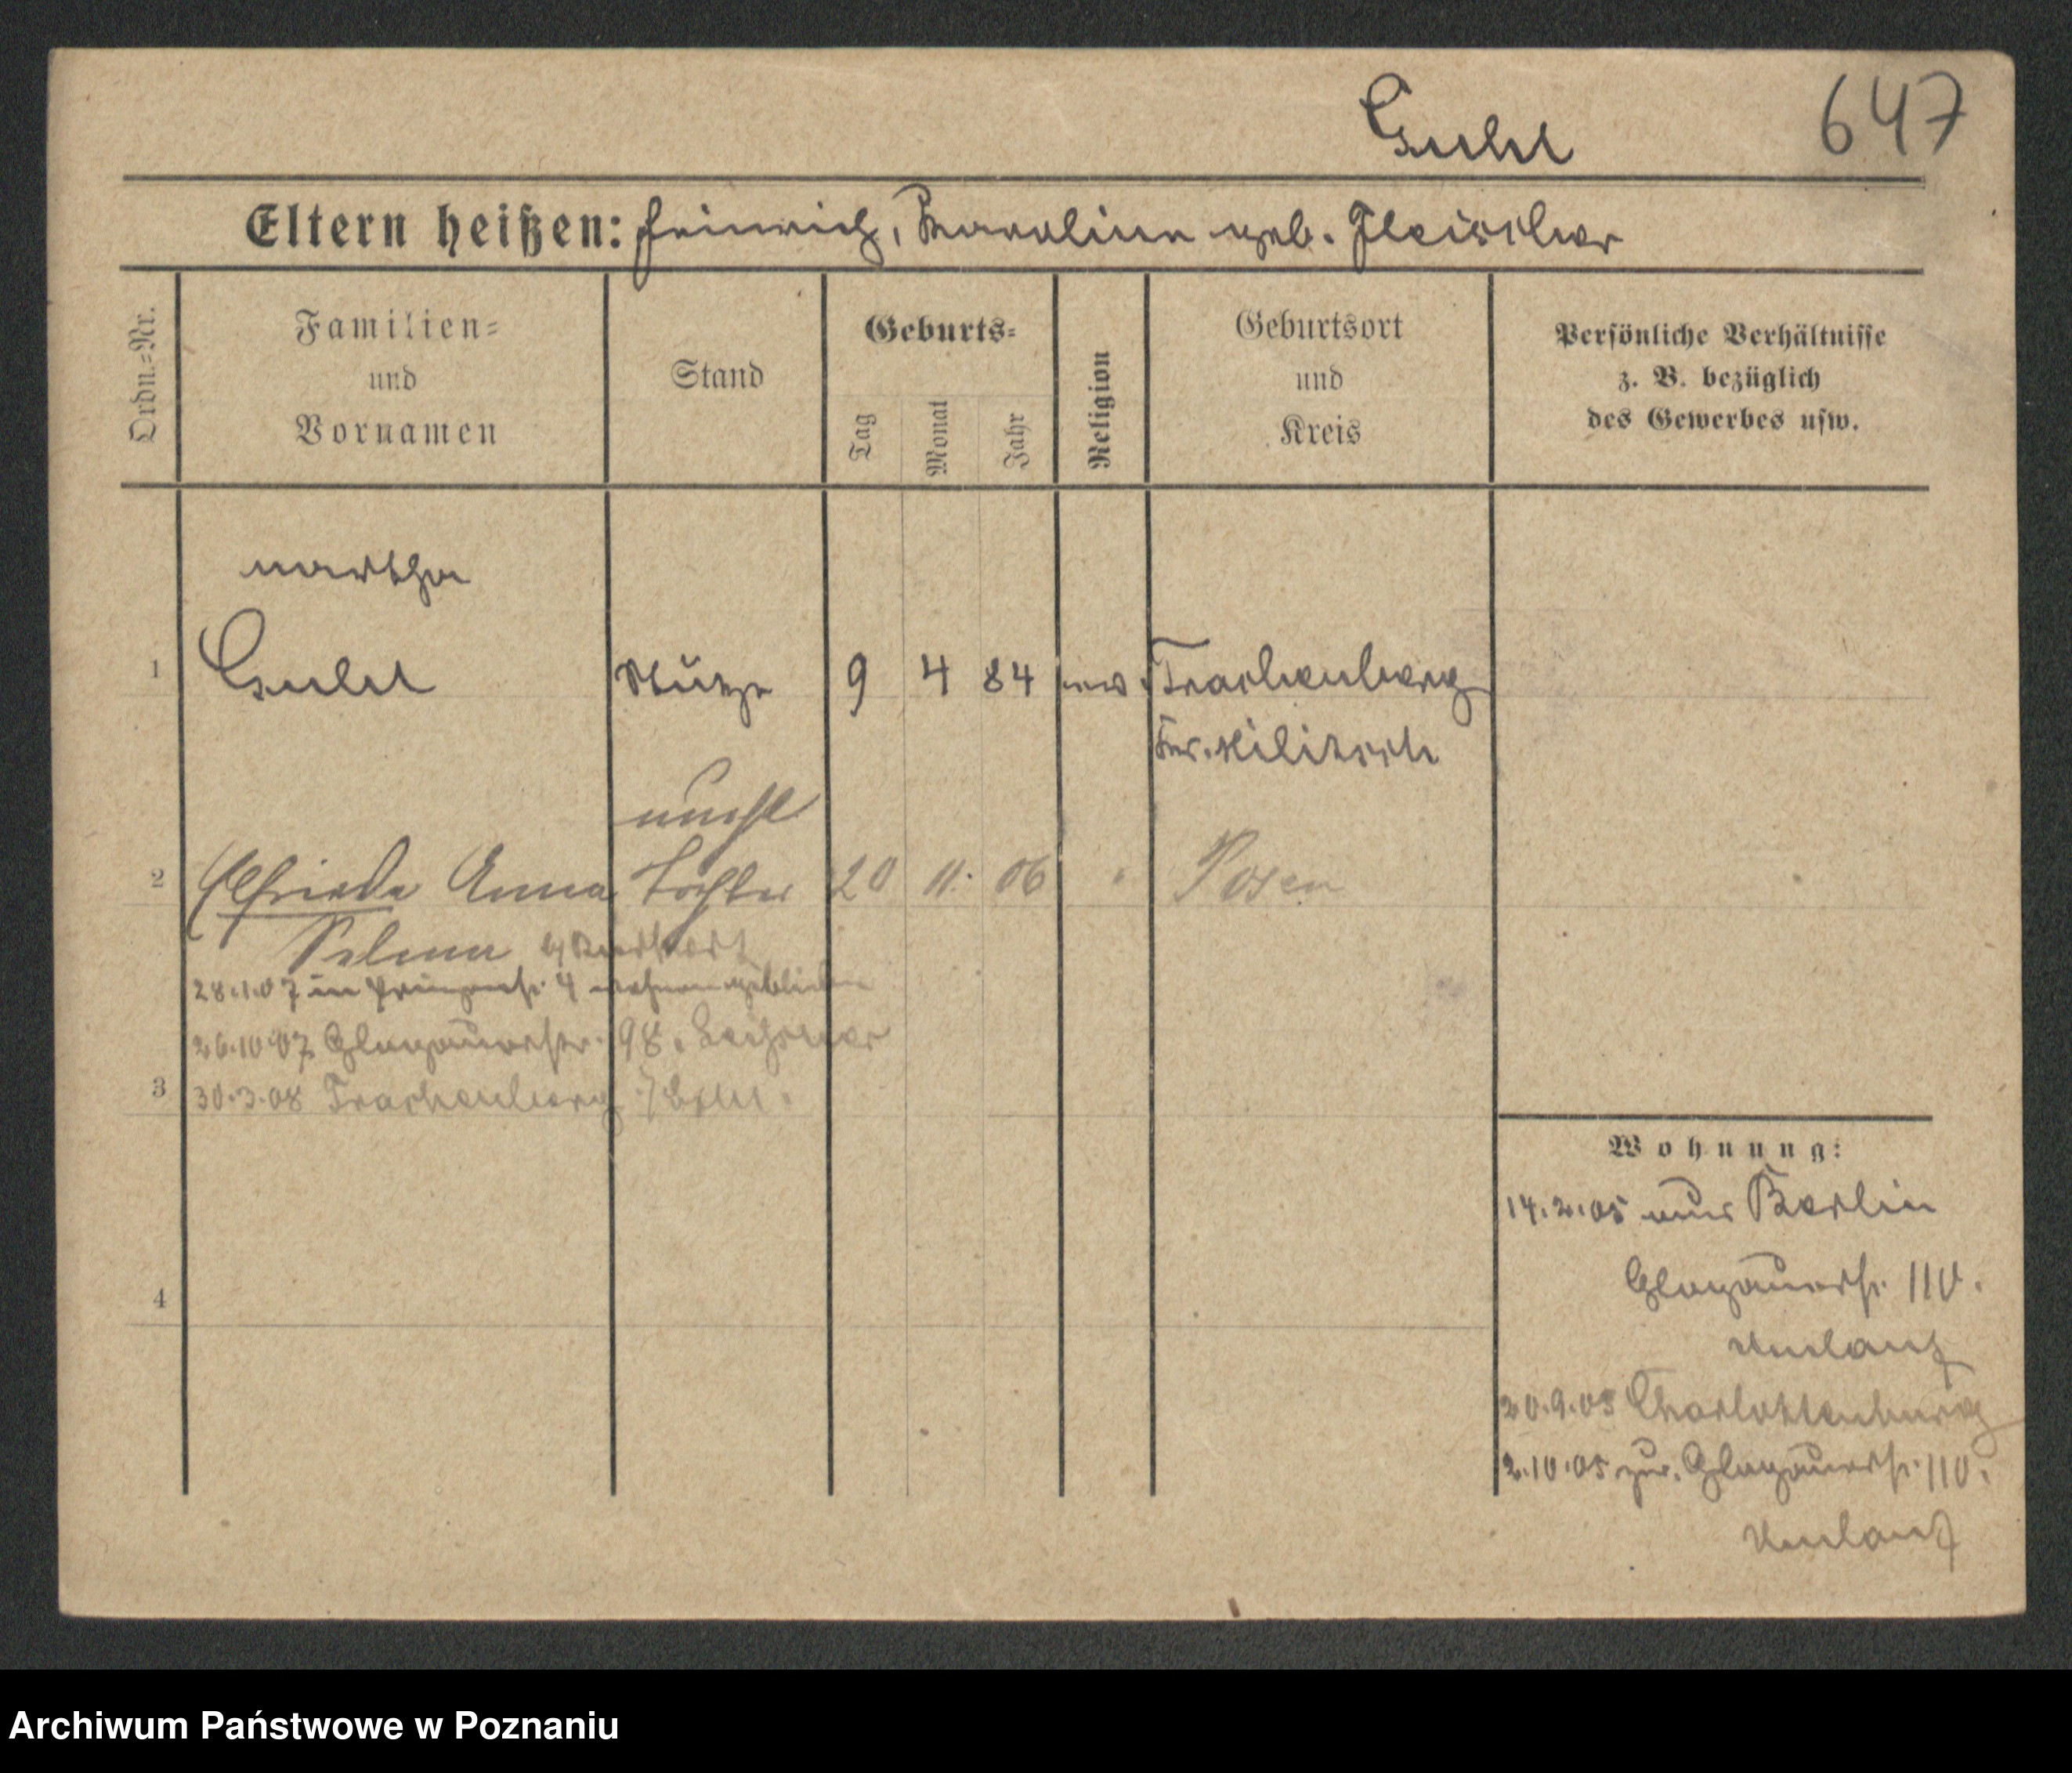 Guhl 647
Eltern heißen: Heinrich, Karoline geb. Fleischer
Ordn.=Nr.
Familien=
und
Vornamen
Stand
Geburts=
Tag
Monat
Jahr
Religion
Geburtsort
und
Kreis
Persönliche Verhältnisse
z. B. bezüglich
des Gewerbes usw.
Martha
1 Guhl Stütze 9 4 84 ev. Trachenberg
Kr. Militsch
unehl
2 Elfriede Anna Tochter 20 11. 06 " Posen
Selma
28.1.07 in 4 wohnen geblieben
26.10.07 Glogauerstr. 98.
3 30.3.08 Trachenberg
4
Wohnung:
14.2.05 aus Berlin
Glogauerstr. 110.
Umlauf
20.9.05 Charlottenburg
2.10.05 zur. Glogauerstr. 110.
Umlauf
Archiwum Państwowe w Poznaniu